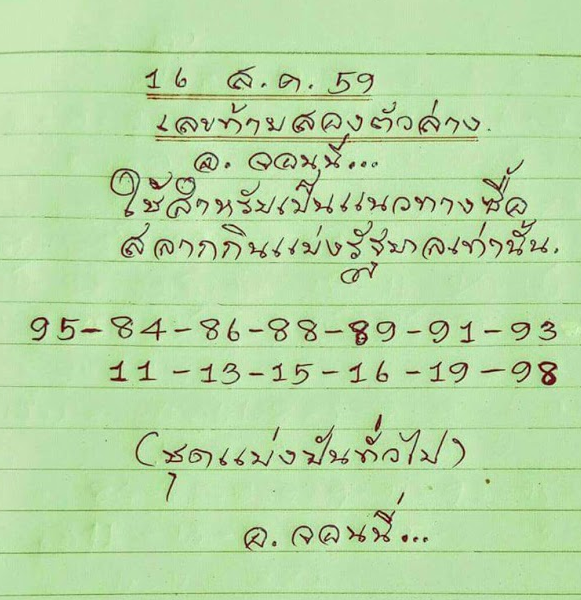 16 ส.ค. 59
เลขท้ายสองตัวล่าง.
อ. จอนนี่...
ใช้สำหรับเป็นแนวทางซื้อ
สลากกินแบ่งรัฐบาลเท่านั้น.
95-84-86-88-89-91-93
11-13-15-16-19-98
(ชุดแบ่งปันทั่วไป)
อ. จอนนี่...